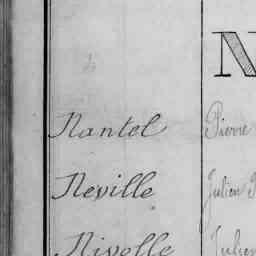 N
Nantel Pierre
Neville Julien
Nivelle Julien